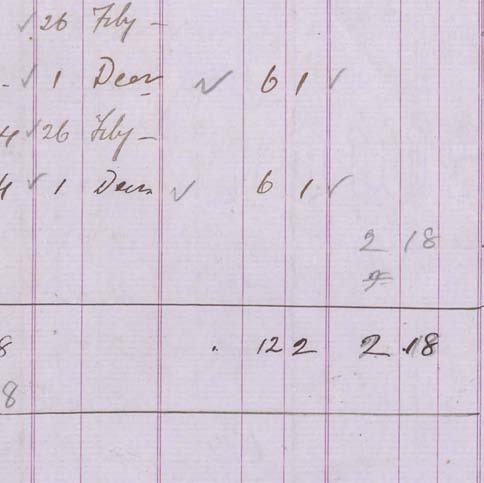 ✓ 26 Feby —
- ✓ 1 Decr ✓ 6 1 ✓
4 ✓ 26 Feby —
4 ✓ 1 Decr ✓ 6 1 ✓
2 18
8 . 12 2 2 .18
8